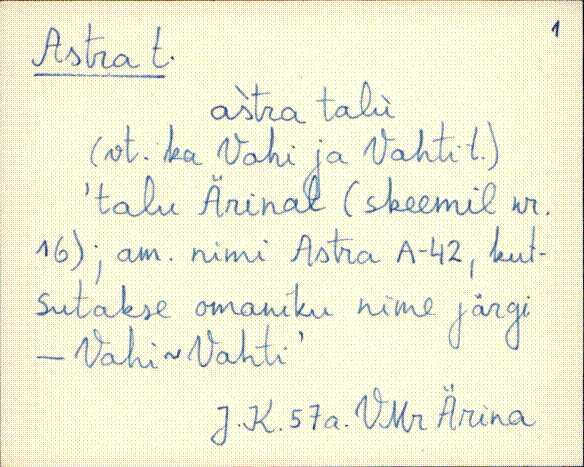 1
Astra t.
aštra talù
(vt. ka Vahi ja Vahti t.)
'talu Ärinal (skeemil nr.
16); am. nimi Astra A-42, kut-
sutakse omaniku nime järgi
– Vahi ~ Vahti'
J.K. 57a. VMr Ärina